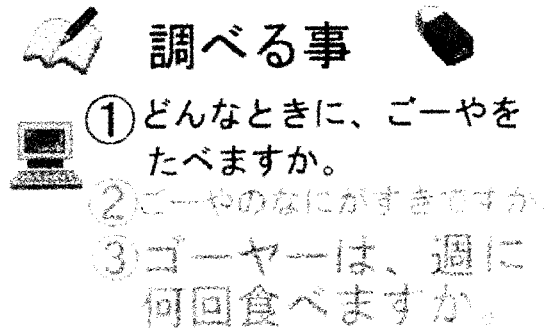 調べる事
①どんなときに、ごーやを
たべますか。
②ごーやのなにがすきですか。
③ゴーヤーは、週に
何回食べますか。